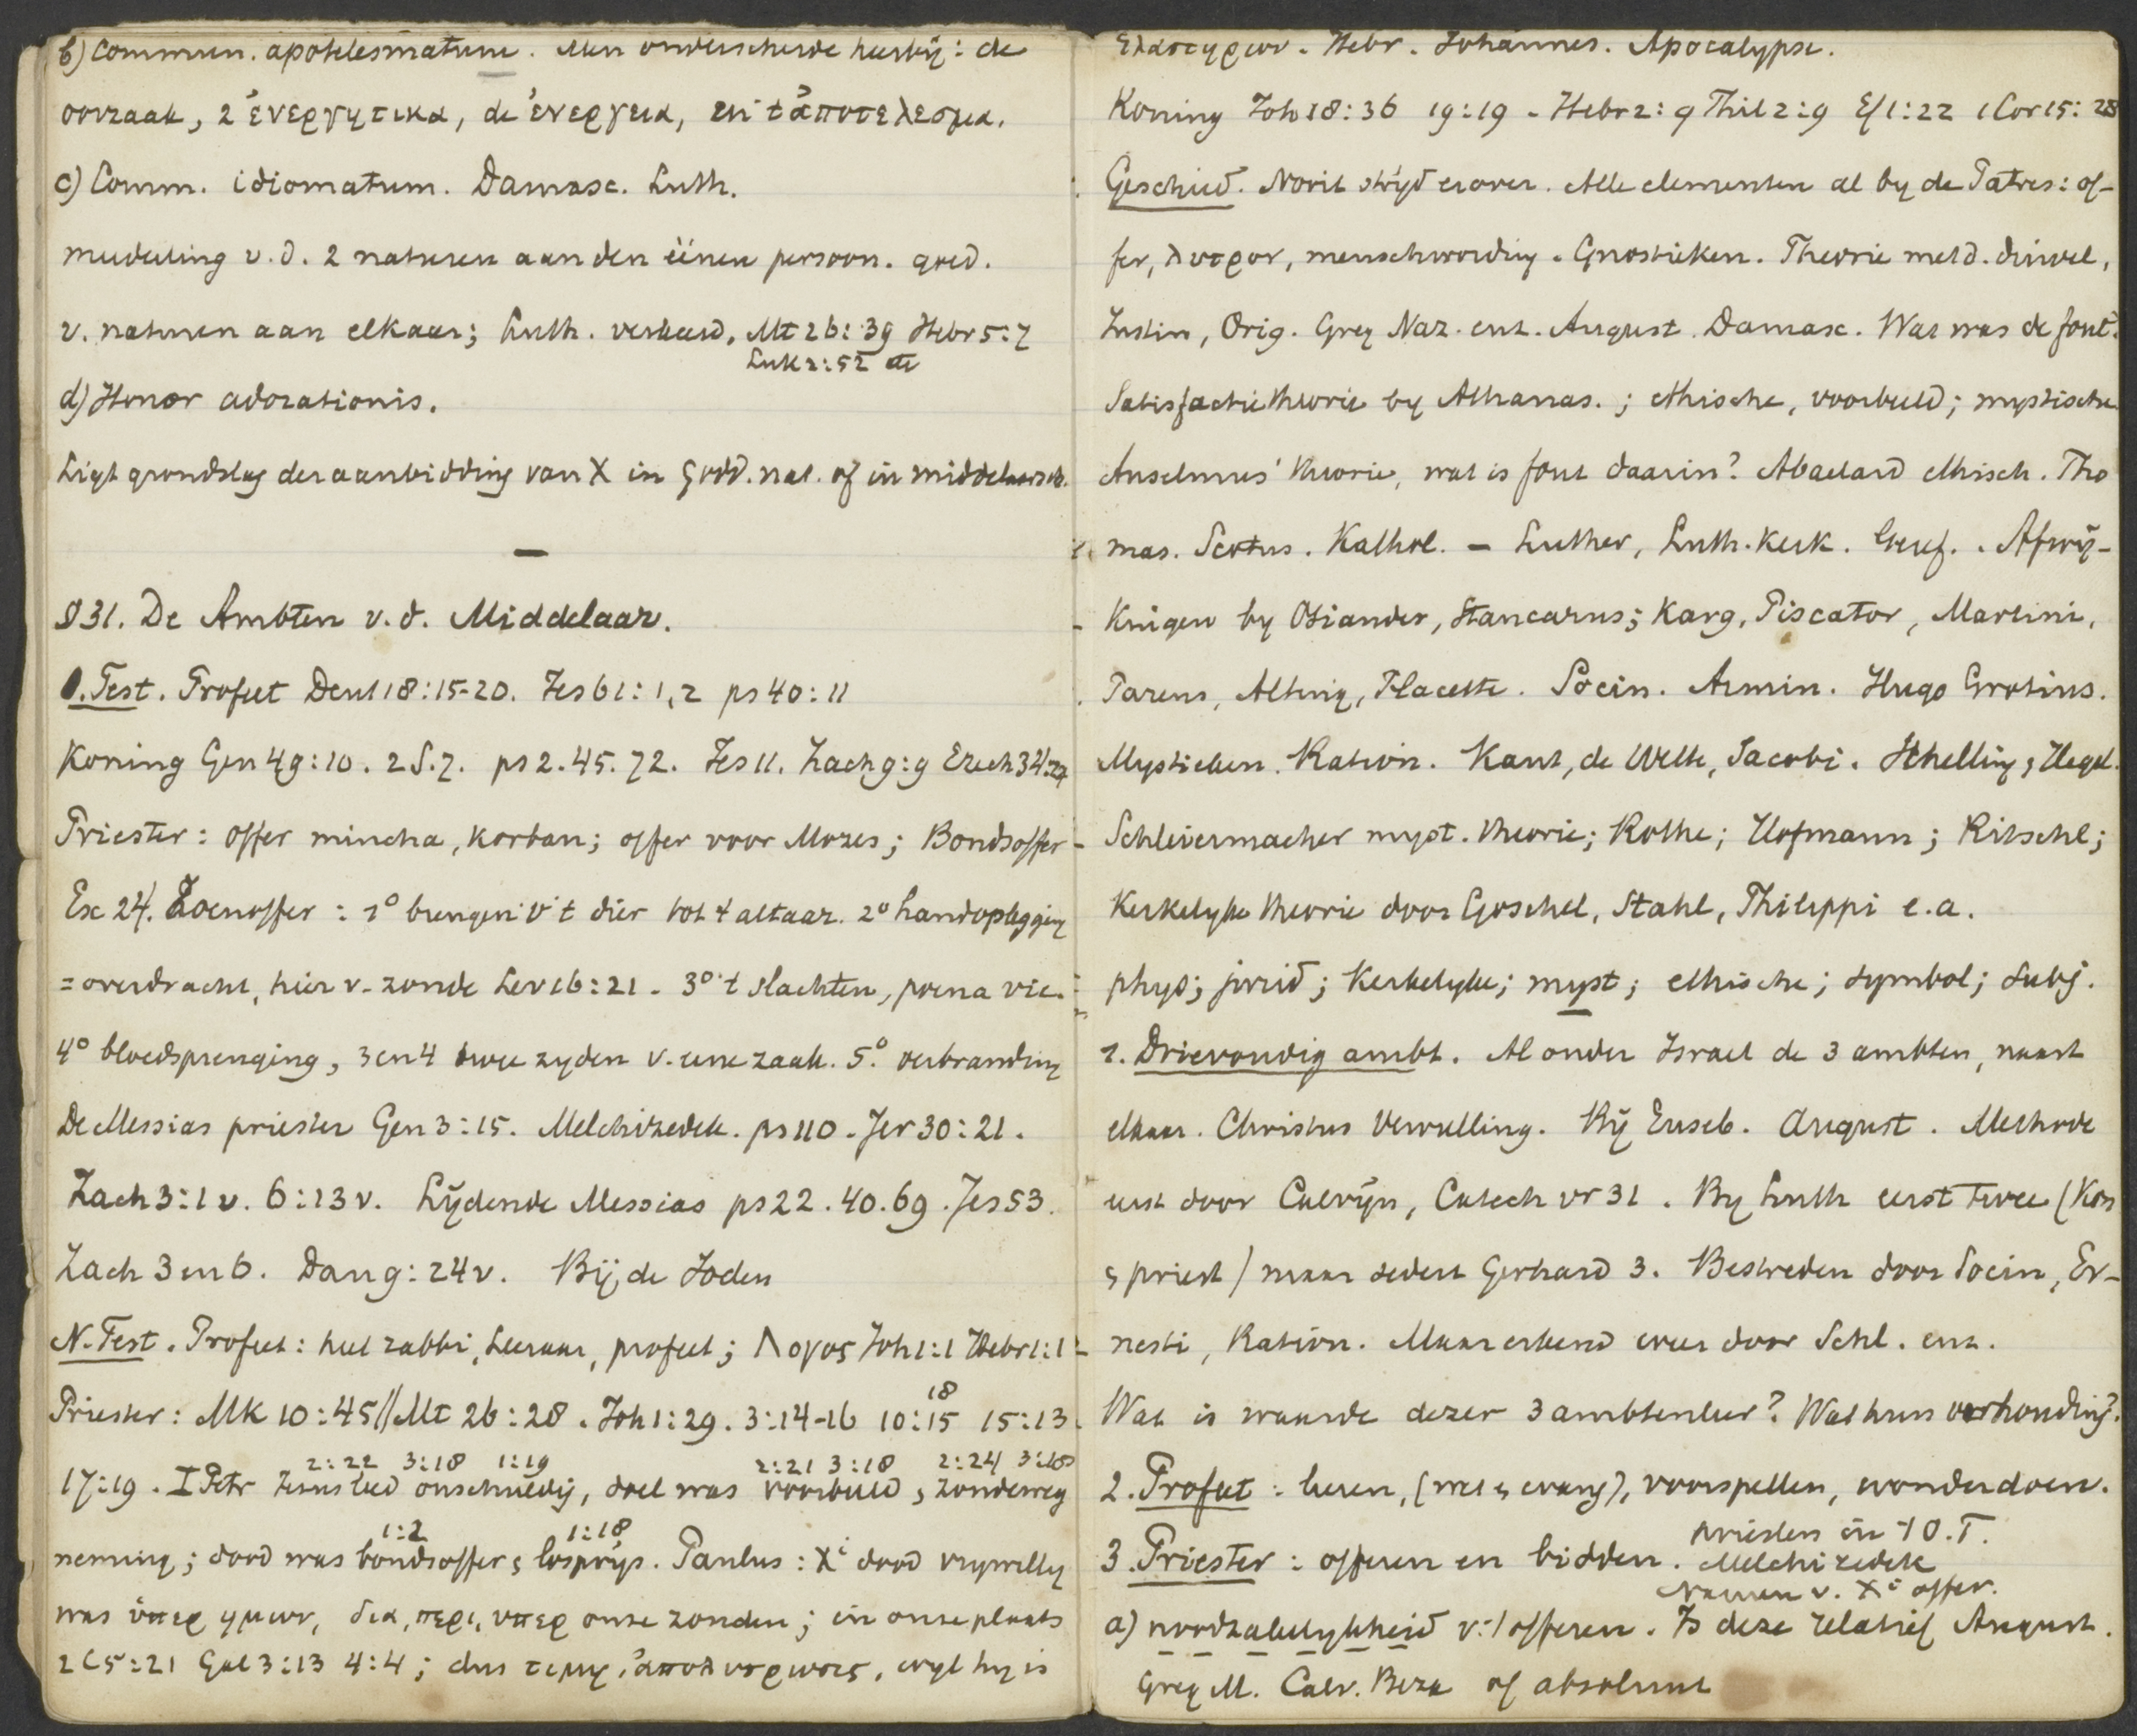 b) Commun. apotelesmatum. Men onderscheide hierbij: de
oorzaak, 2 ἐνεργητικα, de ἐνεργεια, en t ἀποτελεσμα.
c) Comm. idiomatum. Damasc. Luth.
mededeling v.d. 2 naturen aan den éénen persoon. goed.
v. naturen aan elkaar; Luth. verkeerd. Mt 26:39 Hebr 5:7
Luk 2:52 etc
d) Honor adorationis.
Ligt grondslag der aanbidding van X in godd. nat. of in middelaarsch.
—
§31. De Ambten v.d. Middelaar.
O. Test. Profeet Deut 18:15-20. Jes 61:1,2 ps 40:11
Koning Gen 49:10. 2 S. 7. ps 2. 45. 72. Jes 11. Zach 9:9 Ezech 34:24
Priester: Offer mincha, korban; offer voor Mozes; Bondsoffer
Ex 24. Zoenoffer: 1° brengen v 't dier tot 't altaar. 2° handoplegging
= overdracht, hier v. zonde Lev 16:21. 3° 't slachten, poena vic.
4° bloedsprenging, 3 en 4 twee zyden v. eene zaak. 5.° verbranding
De Messias priester Gen 3:15. Melchizedek. ps 110. Jer 30:21.
Zach 3:1 v. 6:13 v. Lijdende Messias ps 22. 40. 69. Jes 53.
Zach 3 en 6. Dan 9:24 v. Bij de Joden
N. Test. Profeet: heet rabbi, Leeraar, profeet; Λογος Joh 1:1 Hebr 1:1
18
Priester: Mk 10:45 // Mt 26:28. Joh 1:29. 3:14-16 10:15 15:13.
2:22 3:18 1:19 2:21 3:18 2:24 3:18
17:19. I Petr Jezus leed onschuldig, doel was voorbeeld, zondeweg
1:2 1:18
neming; dood was bondsoffer, losprijs. Paulus: Xi dood vrywillig
was ὑπερ ημων, δια, περι, υπερ onze zonden; in onze plaats
2 C 5:21 Gal 3:13 4:4; dus τιμη, ἀπολυτρωσις, wyl hy is
ιλαστηριον. Hebr. Johannes. Apocalypse.
Koning Joh 18:36 19:19. Hebr 2:9 Phil 2:9 Ef 1:22 1 Cor 15:28
Geschied. Nooit strijd erover. Alle elementen al by de Patres: of-
fer, λυτρον, menschwording. Gnostieken. Theorie met d. duivel,
Justin, Orig. Greg Naz. enz. August. Damasc. Wat was de fout?
Satisfactietheorie by Athanas.; ethische, voorbeeld; mystische
Anselmus' theorie, wat is fout daarin? Abaelard ethisch. Tho
mas. Scotus. Kathol. — Luther, Luth. kerk. Geref. Afwij-
kingen by Osiander, Stancarus; Karg, Piscator, Martini,
Pareus, Alting, Placette. Socin. Armin. Hugo Grotius.
Mystieken. Ration. Kant, de Wette, Jacobi. Schelling, Hegel.
Schleiermacher myst. theorie; Rothe; Hofmann; Ritschl;
Kerkelyke theorie door Göschel, Stahl, Philippi e.a.
phys; jurid; Kerkelyke; myst; ethische; symbol; subj.
1. Drievoudig ambt. Al onder Israel de 3 ambten, naast
elkaar. Christus vervulling. Bij Euseb. August. Methode
eerst door Calvijn, Catech vr 31. By Luth eerst twee (Kon
, priest) maar sedert Gerhard 3. Bestreden door Socin, Er-
nesti, Ration. Maar erkend weer door Schl. enz.
Wat is waarde dezer 3 ambtenleer? Wat hun verhouding?
2. Profeet: leeren, (wet, evang), voorspellen, wonderdoen.
priesters in 't O.T.
3. Priester: offeren en bidden. Melchizedek
Namen v. Xi offer.
a) noodzakelykheid v. 't offeren. Is deze relatief August.
Greg M. Calv. Beza of absoluut